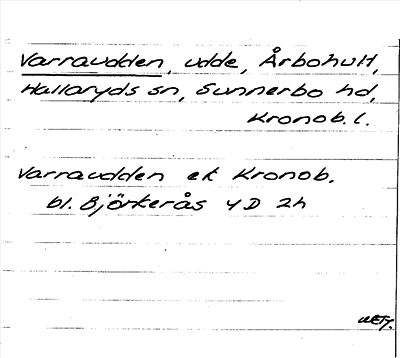 Varraudden, udde, Årbohult,
Hallaryds sn, Sunnerbo hd,
Kronob. l.
Varraudden ek Kronob.
bl. Björkerås 4D 2h